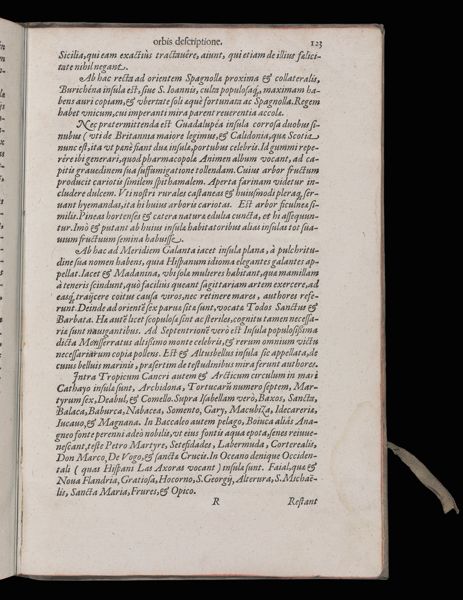 orbis descriptione. 123
Sicilia, qui eam exactiùs tractavêre, aiunt, qui etiam de illius fælici-
tate nihil negant.
Ab hac recta ad orientem Spagnolla proxima & collateralis,
Burichéna insula est, siue S. Ioannis, culta populosaq́, maximam ha-
bens auri copiam, & vbertate soli æquè fortunata ac Spagnolla. Regem
habet vnicum, cui imperanti mira parent reuerentia accolæ.
Nec pretermittenda est Guadalupéa insula corrosa duobus si-
nubus (vti de Britanna maiore legimus, & Calidonia, quæ Scotia
nunc est, ita vt panè fiant duæ insulæ, portubus celebris. Id gummi repe-
rére ibi generari, quod pharmacopolæ Animen album vocant, ad ca-
pitis grauedinem sua suffumigatione tollendam. Cuius arbor fructum
producit cariotis similem spithamalem. Aperta farinam videtur in-
cludere dulcem. Vti nostri rurales castaneas & huiusmodi pleraq́, ser-
uant hyemandas, ita hi huius arboris cariotas. Est arbor ficulnea si-
milis. Pineas hortenses & cætera natura edulia cuncta, et hi assequun-
tur. Imò & putant ab huius insulæ habitatoribus alias insulas tot sua-
uium fructuum semina habuisse.
Ab hac ad Meridiem Galanta iacet insula plana, à pulchritu-
dine sua nomen habens, quia Hispanum idioma elegantes galantes ap-
pellat. Iacet & Madanina, vbi solæ mulieres habitant, quæ mamillam
à teneris scindunt, quò faciliùs queant sagittariam artem exercere, ad
easq́, traijcere coitus causa viros, nec retinere mares, authores refe-
runt. Deinde ad orientē sex paruæ sitæ sunt, vocatæ Todos Sanctus &
Barbata. Hæ autē licet scopulosæ sint ac steriles, cognitu tamen necessa-
riæ sunt nauigantibus. Ad Septentrionē verò est Insula populosissima
dicta Monserratus altissimo monte celebris, & rerum omnium victu
necessariarum copia pollens. Est & Altusbellus insula sic appellata, de
cuius belluis marinis, præsertim de testudinibus mira ferunt authores.
Intra Tropicum Cancri autem & Arcticum circulum in mari
Cathayo insulæ sunt, Archidona, Tortucarū numero septem, Mar-
tyrum sex, Deabul, & Comello. Supra Isabellam verò, Baxos, Sancta,
Balaca, Baburca, Nabacea, Somento, Gary, Macubiza, Idecareria,
Iucauo, & Magnana. In Baccaleo autem pelago, Boiuca aliàs Ana-
gneo fonte perenni adeò nobilis, vt eius fontis aqua epota, senes reiuue-
nescant, teste Petro Martyre, Setefidades, Labermuda, Corterealis,
Don Marco, De Vogo, & sancta Crucis. In Oceano denique Occiden-
tali (quas Hispani Las Axoras vocant) insulæ sunt. Faial, quæ &
Noua Flandria, Gratiosa, Hocorno, S. Georgij, Alterura, S. Michaë-
lis, Sancta Maria, Frures, & Opico.
R Restant